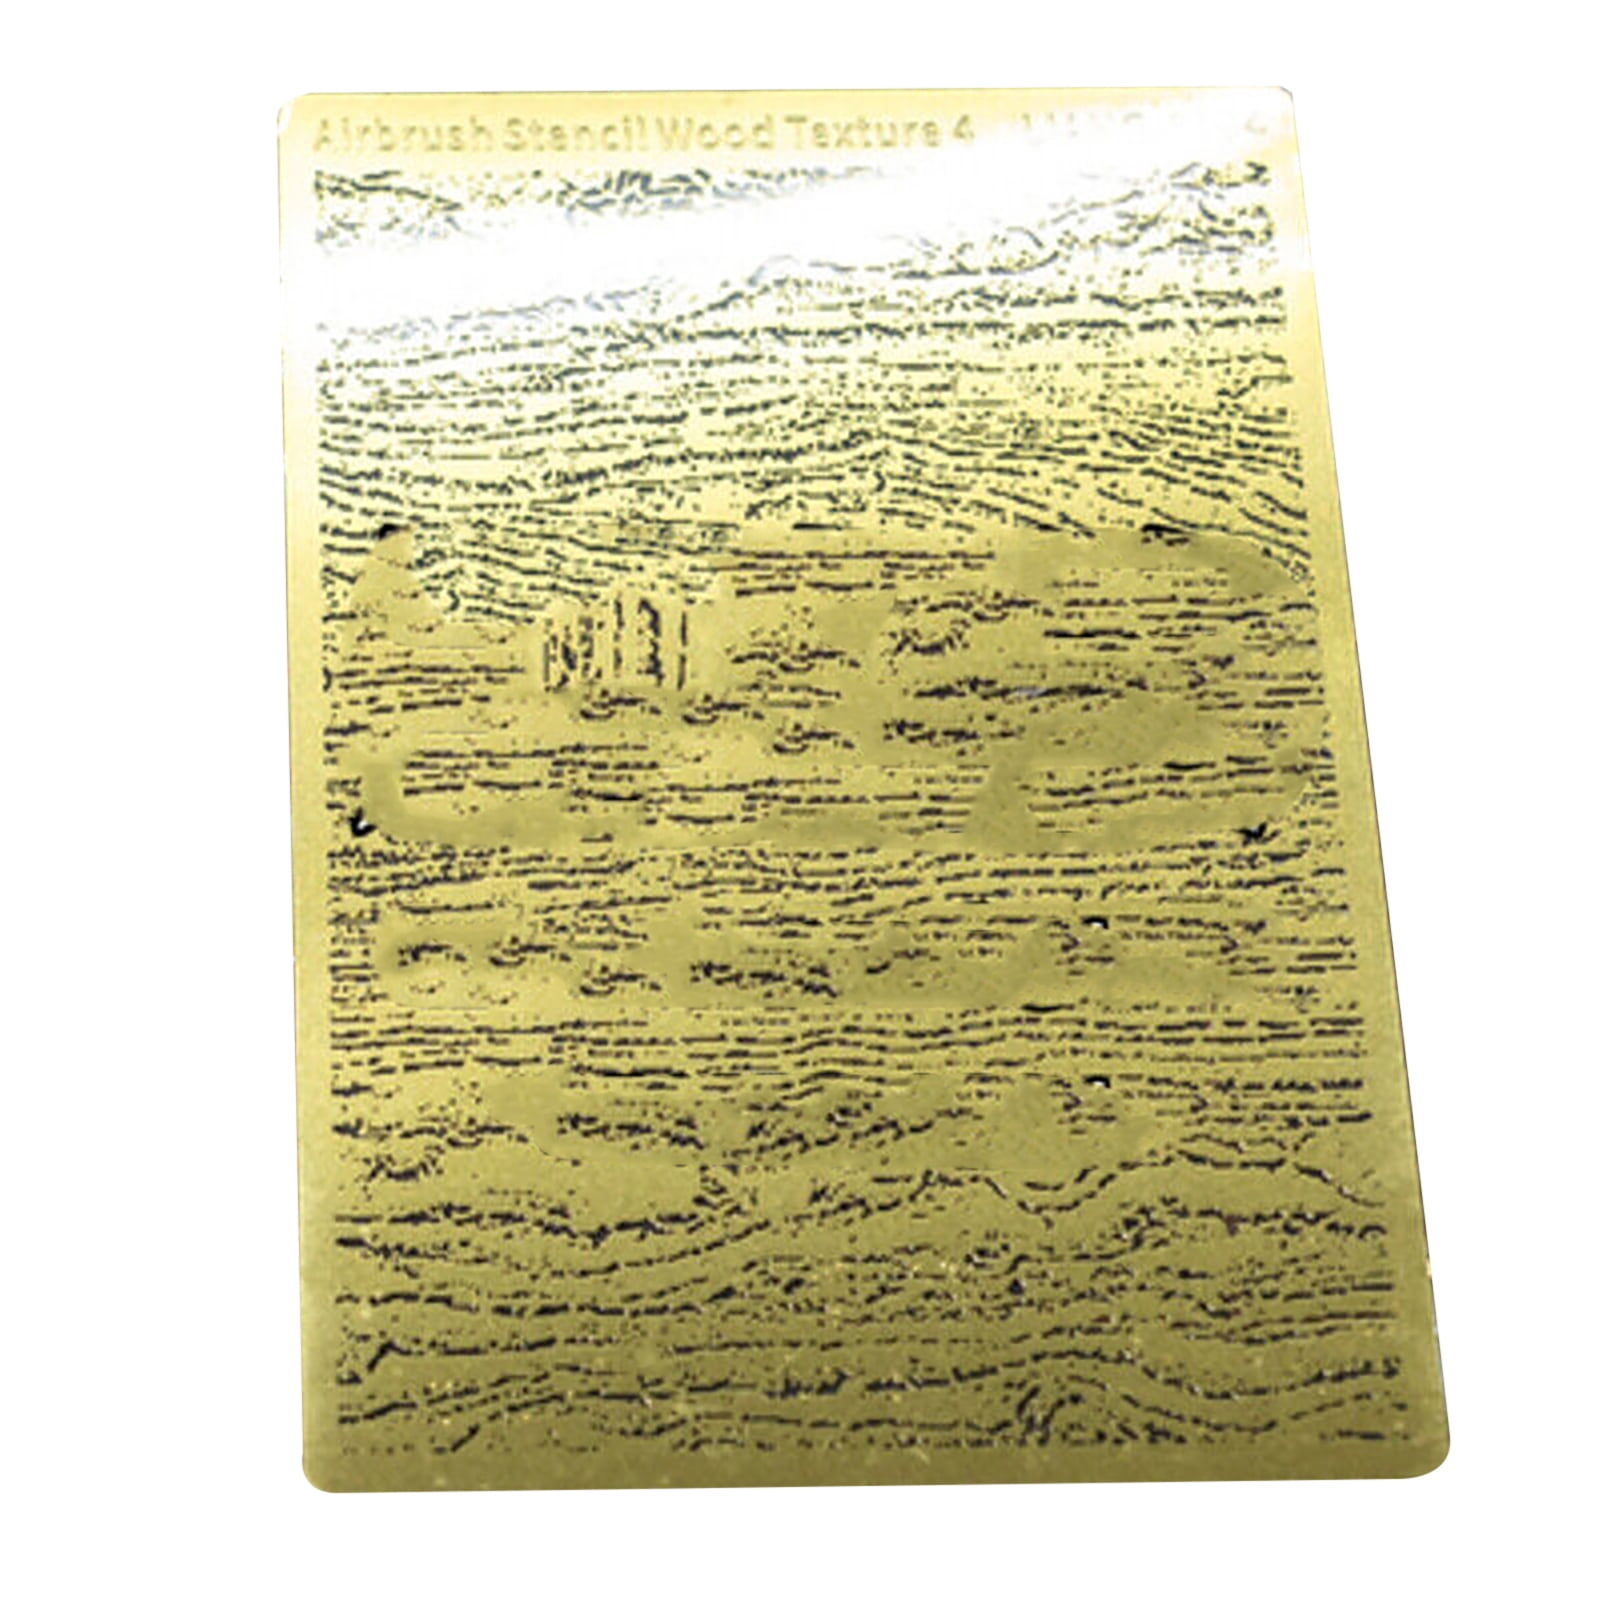 Airbrush Stencil Wood Texture 4